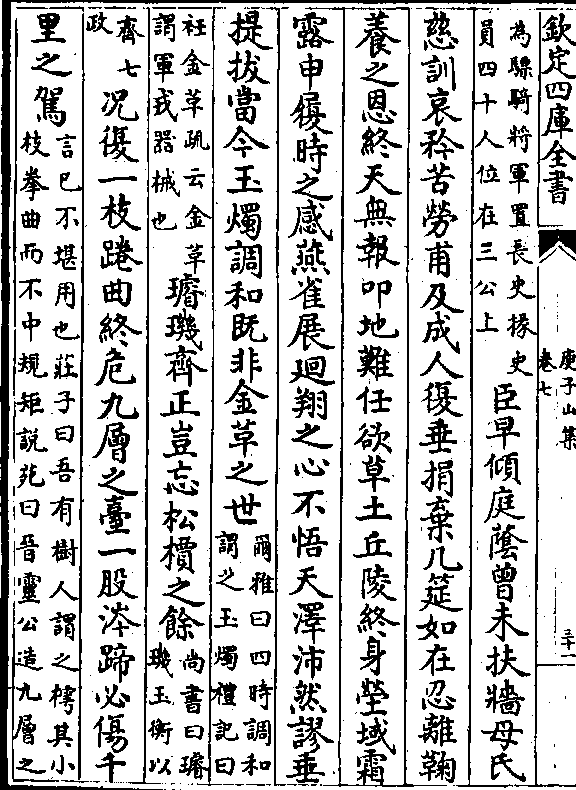 欽定四庫全書
庾子山集
卷七
三十一
為驃騎將軍置長史掾史
員四十人位在三公上
臣早傾庭蔭曾未扶牆母氏
慈訓哀矜苦勞甫及成人復垂捐棄几筵如在忍離鞠
養之恩終天無報叩地難任欲草土丘陵終身塋域霜
露申履時之感燕雀展迴翔之心不悟天澤沛然謬垂
提拔當今玉燭調和既非金草之世
爾雅曰四時調和
謂之玉燭禮記曰
衽金草疏云金草
謂軍戎器械也
璿璣齊正豈忘松檟之餘
尚書曰璿
璣玉衡以
齊七
政
況復一枝踡曲終危九層之臺一股涔蹄必傷千
里之駕
言己不堪用也莊子曰吾有樹人謂之樗其小
枝拳曲而不中規矩說苑曰晉靈公造九層之